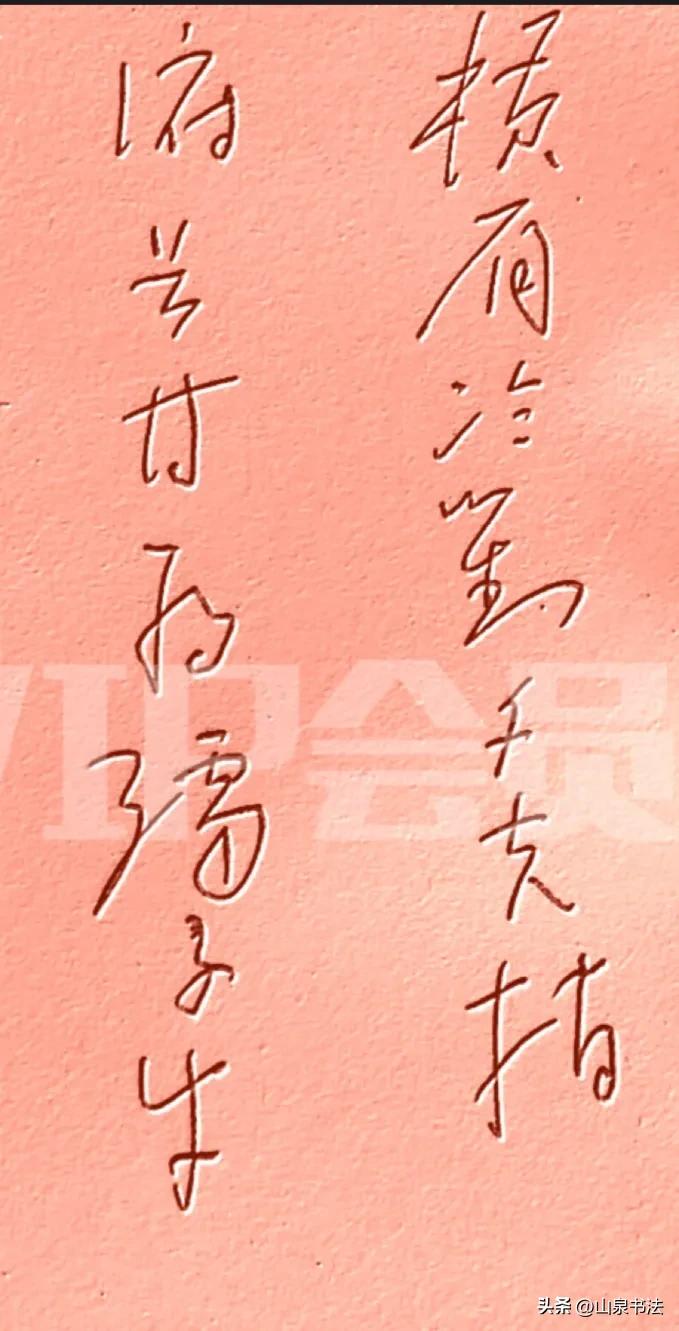 横眉冷對千夫指
俯首甘為孺子牛
VIP会员
头条 @山泉书法